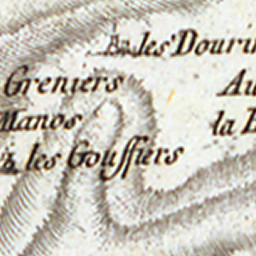 les Douri
Greniers
Au
Manos
la B
les Gouffiers